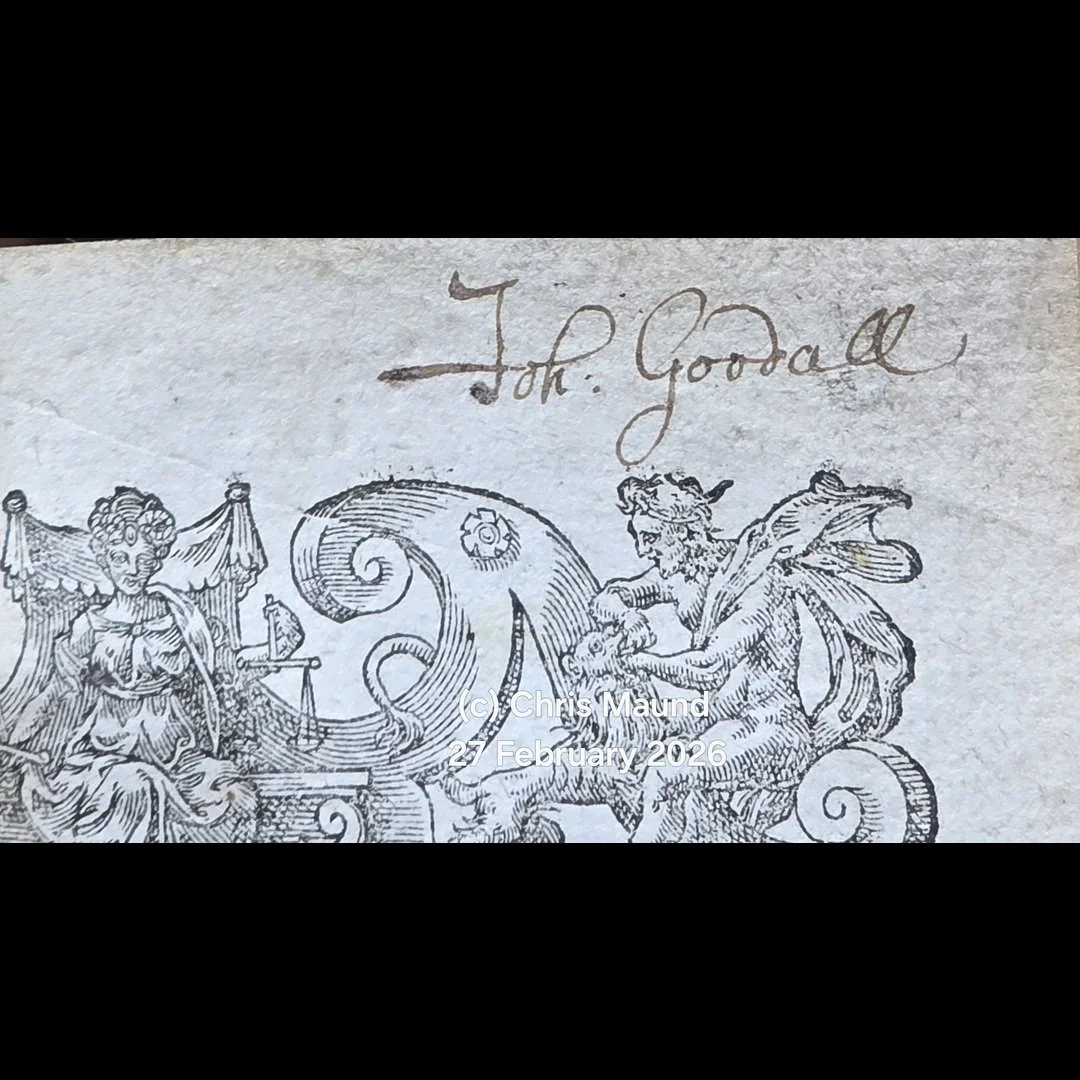 Joh: Goodall
(c) Chris Maund
27 February 2026